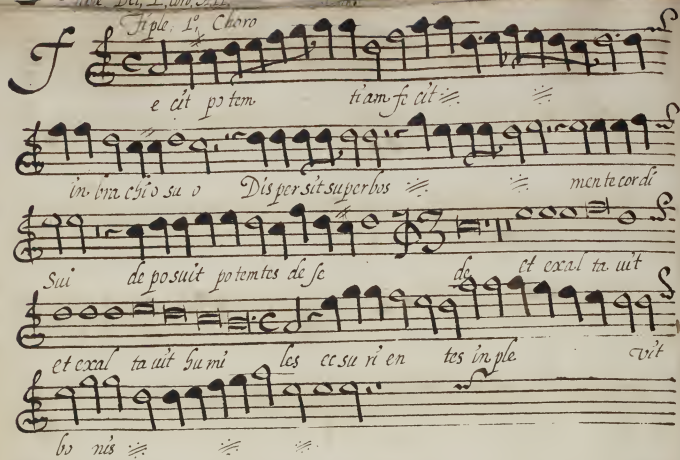 Tiple. 1º Choro
F
e cit potem tiam fe cit
in bra chi o su o Dis persit superbos mente cordi
Sui de posuit potemtes de se de et exal ta uit
et exal ta uit humi les essu ri en tes in ple vit
bo nis